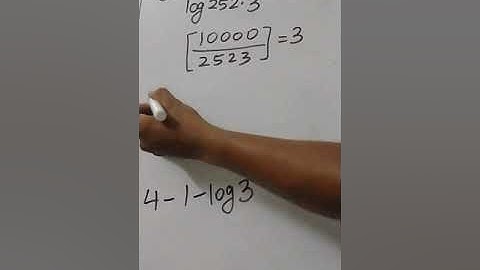 log 252.3
[10000/2523] = 3
4-1-log3